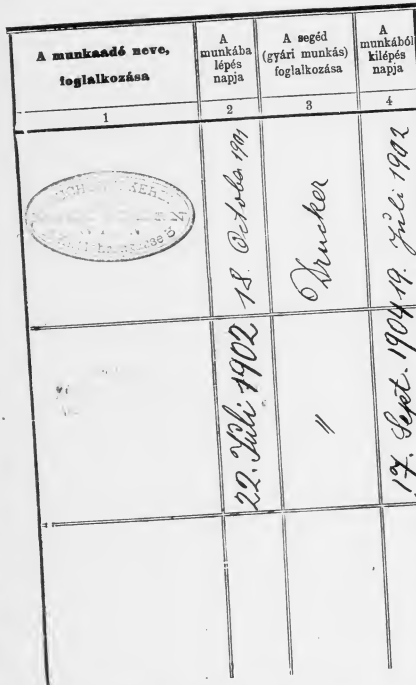 A munkaadó neve,
foglalkozása
A
munkába
lépés
napja
A segéd
(gyári munkás)
foglalkozása
A
munkából
kilépés
napja
1
2
3
4
18. Octoba 1901
Drucker
19. Juli 1902
22. Juli 1902
"
17. Sept. 1904